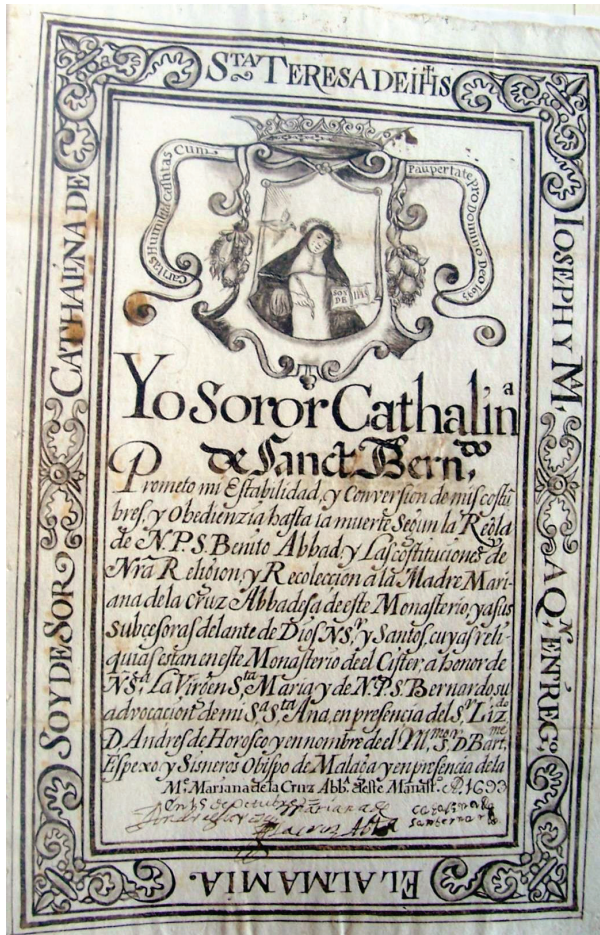 S.TA TERESA DE IHS
CATHALINA DE
SOY DE SOR
IOSEPH Y M.A,
A Q.N ENTREGO,
EL ALMA MIA.
Caritas Humilitas Castitas Cum
Paupertate pro Domino Deo
SOY
DE IHS
Yo Soror Cathalin.a
de Sanct. Bern.do,
Prometo mi Estabilidad, y Conversion de mis costũ
bres, y Obedienzia hasta la muerte Segun la Regla
de N.P.S. Benito Abbad, y Las costituciones de
Nra Religion, y Recoleccion a la Madre Mari-
ana de la Cruz Abbadesa de este Monasterio, ya sus
subcesoras delante de Dios N.S.r y Santos, cuyas reli-
quias estan en este Monasterio de el Cister, a honor de
N.S.ra La Virgen S.ta Maria y de N.P.S. Bernardo su
advocacion de mi S.a S.ta Ana, en presencia del S.r Liz.do
D. Andres de Horosco y en nombre de el Ill.mo S.r D. Bart.me
Espexo y Sisneros Obispo de Malaga y en presencia de la
M.e Mariana de la Cruz Abb.a deste Monast.o
en 15 de octubre
Mariana de
la cruz Abb.a